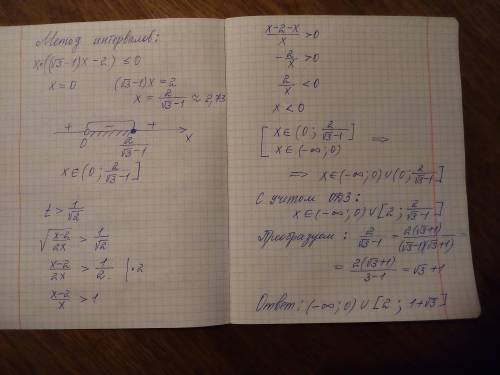 Метод интервалов:
x•((√3-1)x-2) ≤ 0
x=0 (√3-1)x=2
x = 2/(√3-1) ≈ 2,73
+ - +
0 2/(√3-1) x
x∈(0; 2/(√3-1)]
t > 1/√2
√((x-2)/2x) > 1/√2
(x-2)/2x > 1/2 |•2
(x-2)/x > 1
(x-2-x)/x > 0
-2/x > 0
2/x < 0
x < 0
[ x∈(0; 2/(√3-1)]
x∈(-∞;0) ⇒
⇒ x∈(-∞;0)∪(0; 2/(√3-1)]
С учетом ОДЗ:
x∈(-∞;0)∪[2; 2/(√3-1)]
Преобразуем: 2/(√3-1) = 2(√3+1)/((√3-1)(√3+1)) =
= 2(√3+1)/(3-1) = √3+1
Ответ: (-∞;0)∪[2; 1+√3]